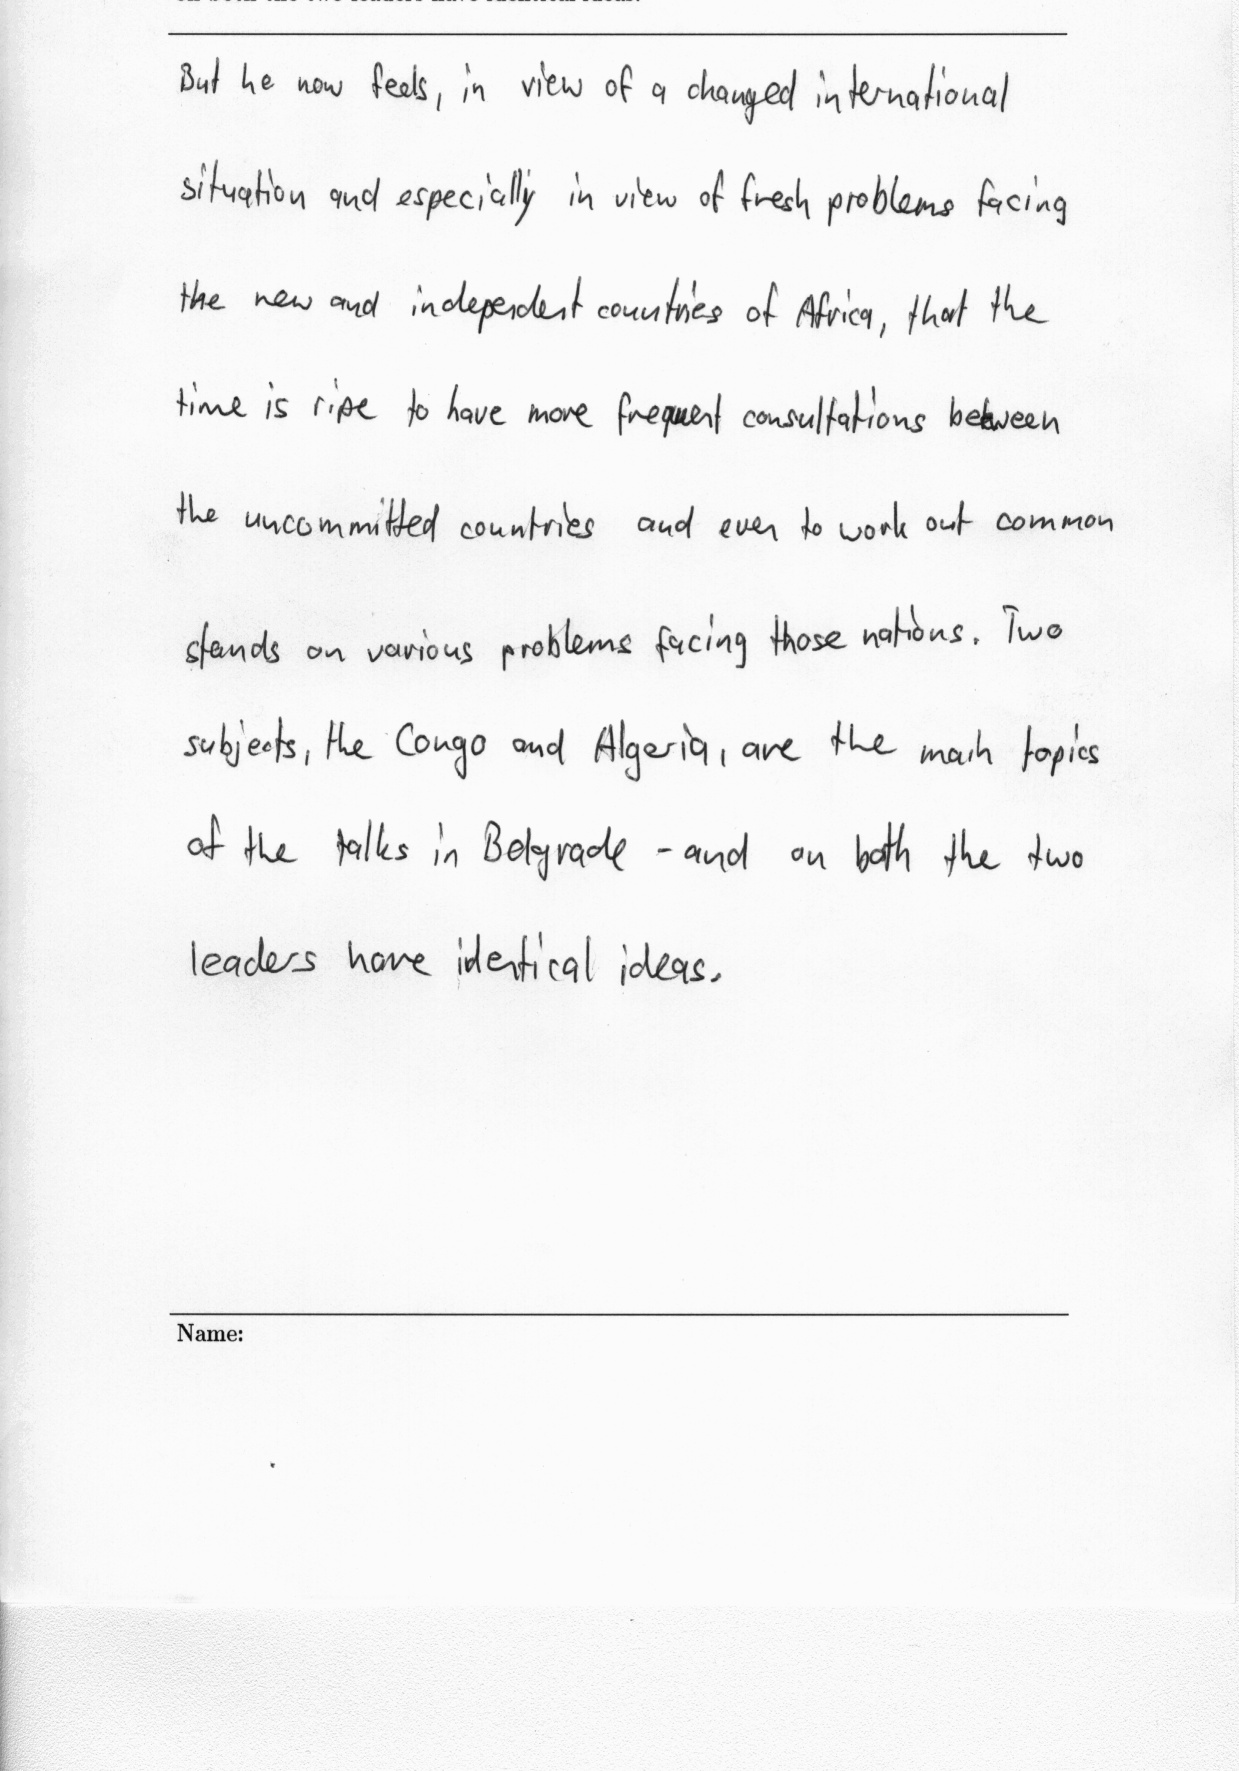 on both the two leaders have identical ideas.
But he now feels, in view of a changed international
situation and especially in view of fresh problems facing
the new and independent countries of Africa, that the
time is ripe to have more frequent consultations between
the uncommitted countries and even to work out common
stands on various problems facing those nations. Two
subjects, the Congo and Algeria, are the main topics
of the talks in Belgrade - and on both the two
leaders have identical ideas.
Name: